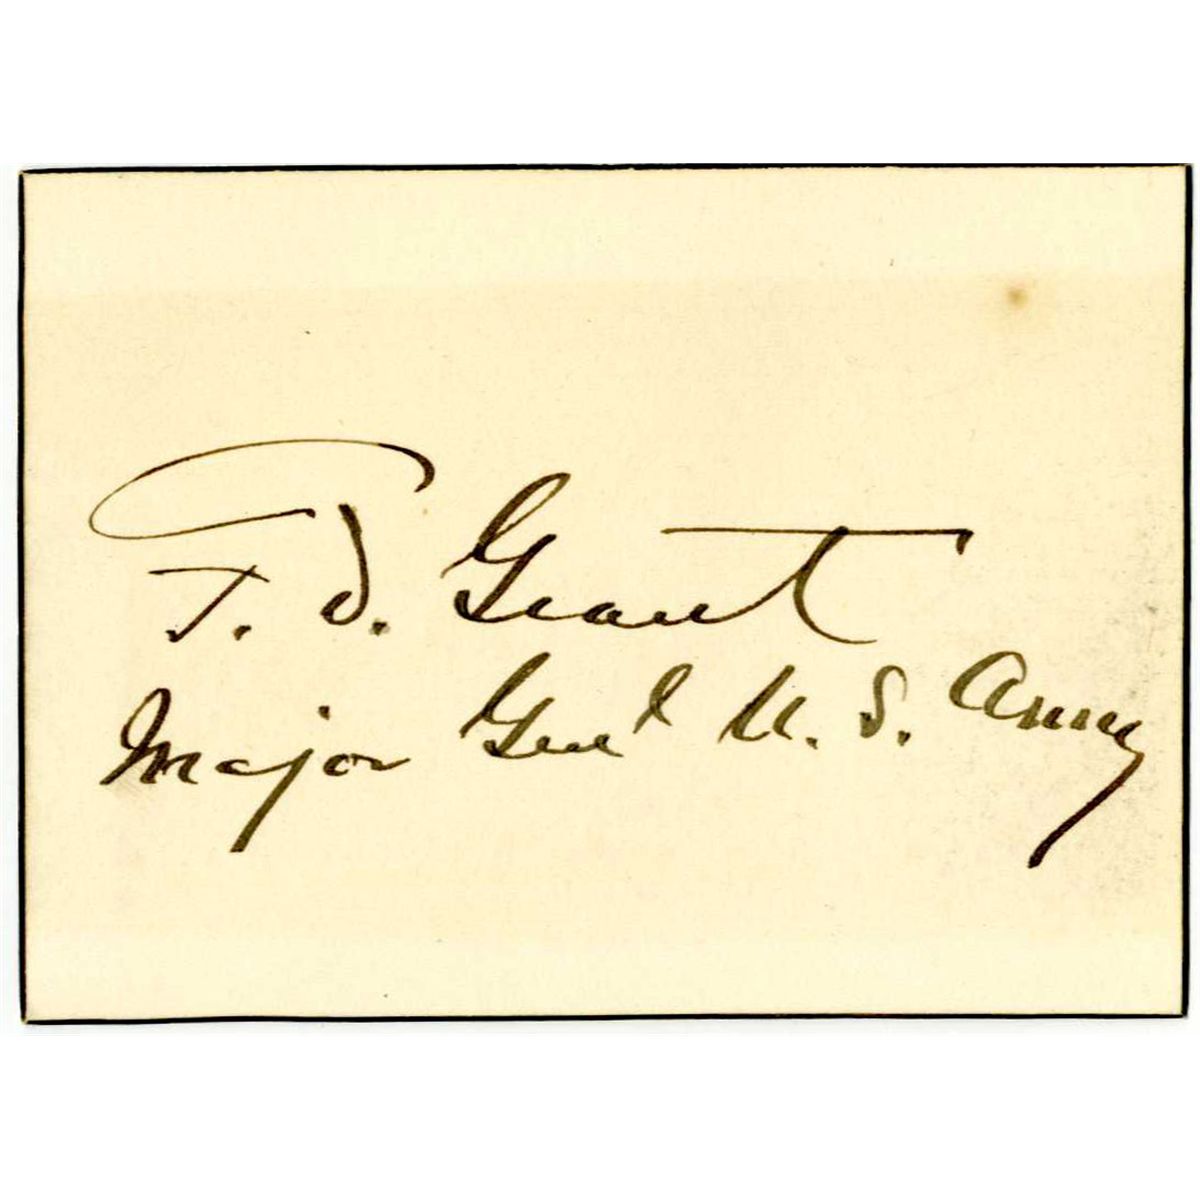 F. D. Grant
Major Genl U. S. Army